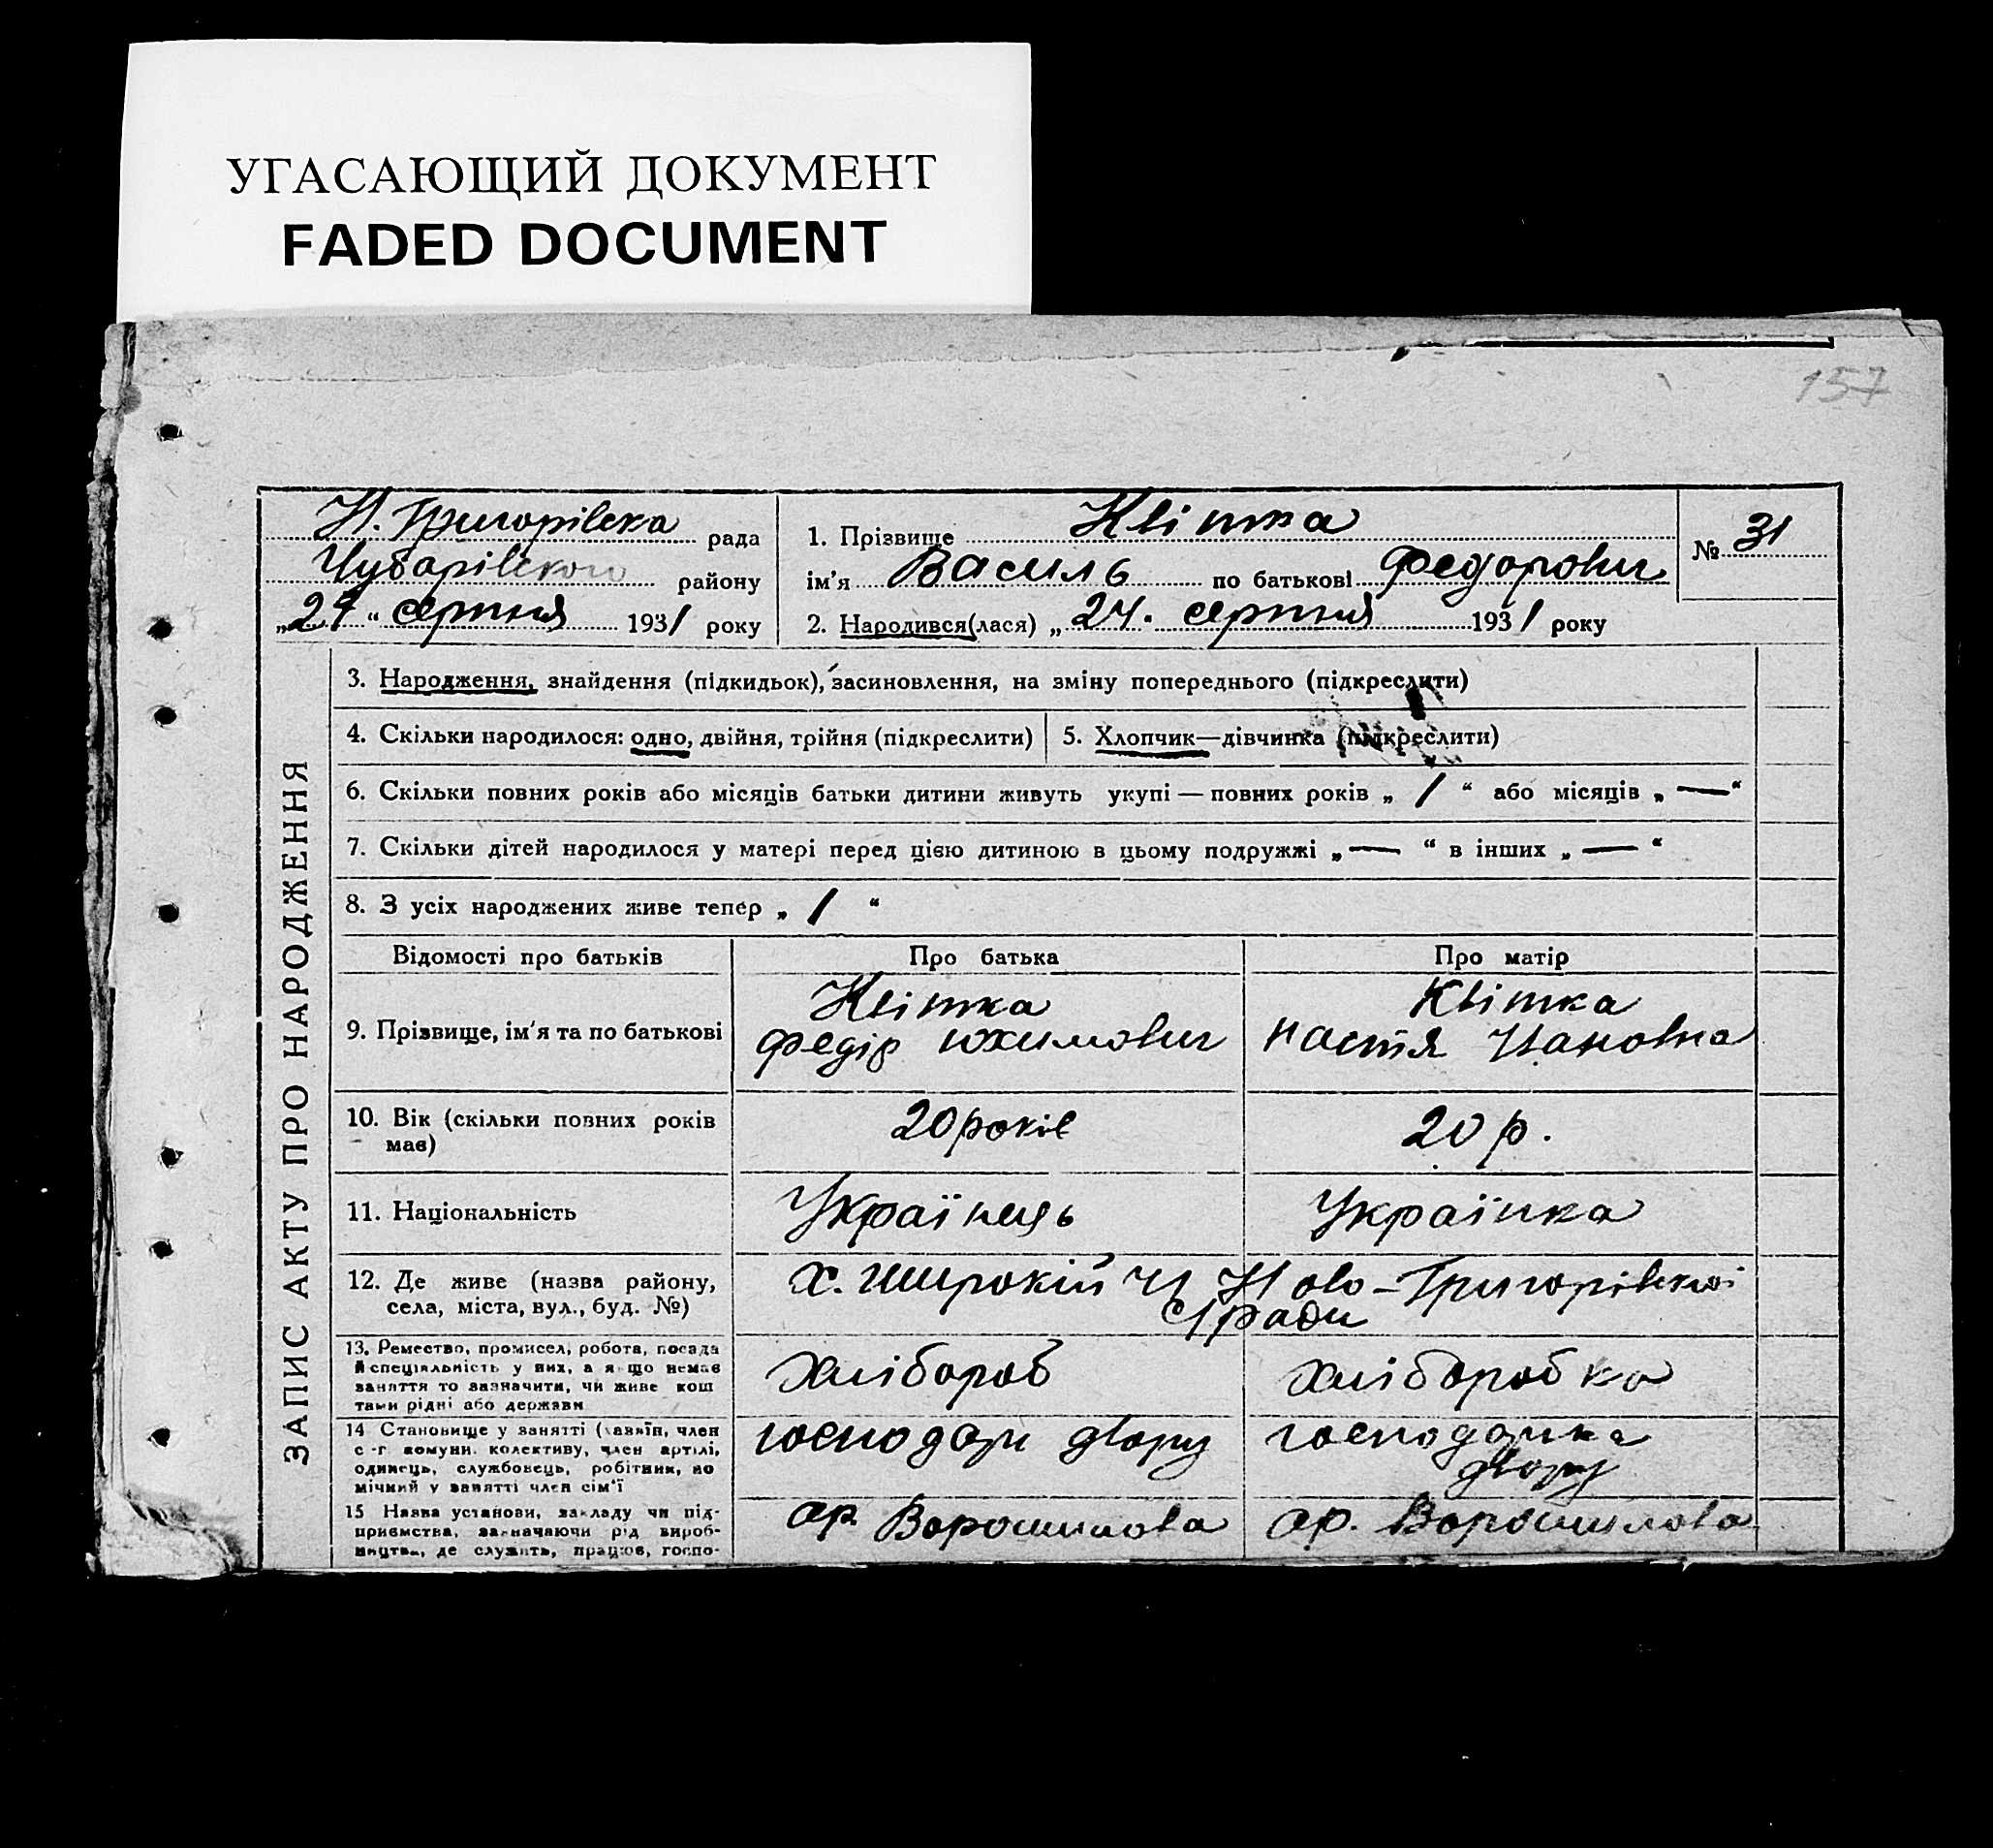 УГАСАЮЩИЙ ДОКУМЕНТ
FADED DOCUMENT
157
Н. Григорівска рада
Чубарівского району
„29“ серпня 1931 року
1. Прізвище Квітка
ім'я Василь по батькові Федорович
№ 31
2. Народився(лася) „24. серпня 1931 року
ЗАПИС АКТУ ПРО НАРОДЖЕННЯ
3. Народження, знайдення (підкидьок), засиновлення, на зміну попереднього (підкреслити)
4. Скільки народилося: одно, двійня, трійня (підкреслити)
5. Хлопчик—дівчинка (підкреслити)
6. Скільки повних років або місяців батьки дитини живуть укупі — повних років „ 1 “ або місяців „ — “
7. Скільки дітей народилося у матері перед цією дитиною в цьому подружжі „ — “ в інших „ — “
8. З усіх народжених живе тепер „ 1 “
Відомості про батьків
Про батька
Про матір
9. Прізвище, ім'я та по батькові
Квітка
Федір Юхимович
Квітка
Настя Івановна
10. Вік (скільки повних років
має)
20 років
20 р.
11. Національність
Українець
Українка
12. Де живе (назва району,
села, міста, вул., буд. №)
х. Широкій Ново-Григорівскої
с/ради
13. Ремество, промисел, робота, посада
й спеціяльність у них, а якщо немає
заняття то зазначити, чи живе кош
тами рідні або держави
Хлібороб
Хліборобка
14 Становище у занятті (хазяїн, член
с-г комуни, колективу, член артілі,
одинець, службовець, робітник, по
мічний у занятті член сім'ї
господарь двору
господарка
двору
15 Назва установи, закладу чи під-
приємства, зазначаючи рід вироб-
ництва, де служить, працює, госпо-
ар. Ворошилова
ар. Ворошилова